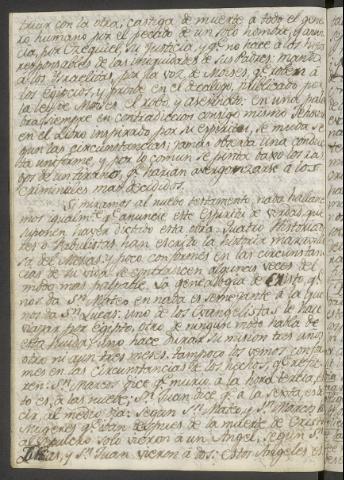 truir con la otra; castiga de muerte a todo el gene
ro humano por el pecado de un solo hombre, y anun
cia, por Ezequiel, su Justicia, y qe. no hace a los hijos
responsables de las iniquidades de sus Padres: manda
a los Israelitas, por la voz de Moises, qe. roben a
los Egipcios, y prohibe en el decalogo, publicado por
la ley de Moises el robo y asesinato: En una pala
bra, siempre en contradiccion consigo mismo
en el libro inspirado por su espiritu, se muda se
gun las circunstancias; jamas observa una conduc
ta uniforme, y por lo comun se pinta baxo los ras
gos de un tirano, qe. harian avergonzarse a los
criminales mas decididos.
Si miramos al nuebo testamento, nada hallare
mos igualmte. qe. anuncie este Espiritu de verdad, que
suponen haver dictado esta obra. Quatro Historiado
res o Fabulistas han escrito la historia maravillo
sa del Mesias, y poco conformes en las circunstan
cias de su vida se contradicen algunas veces del
modo mas palpable. La genealogia de Cristo qe.
nos da Sn. Mateo en nada es semejante a la que
nos da Sn. Lucas: uno de los Evangelistas le hace
viajar por Egipto, otro de ningun modo habla de
esta huida: uno hace durar su mision tres años,
otro ni aun tres meses. tampoco los vemos confor
mes en las circunstancias de los hechos, qe. refie
ren: Sn. Marcos dice qe. murio a la hora tercia, es
to es, a las nueve; Sn. Juan dice qe. a la sexta, es de
cir, al medio dia: Segun Sn. Mateo y Sn. Marcos las
Mugeres qe. iban despues de la muerte de Cristo
al Sepulcro solo vieron a un Angel, segun Sn.
Lucas, y Sn. Juan vieron a dos: estos Angeles es